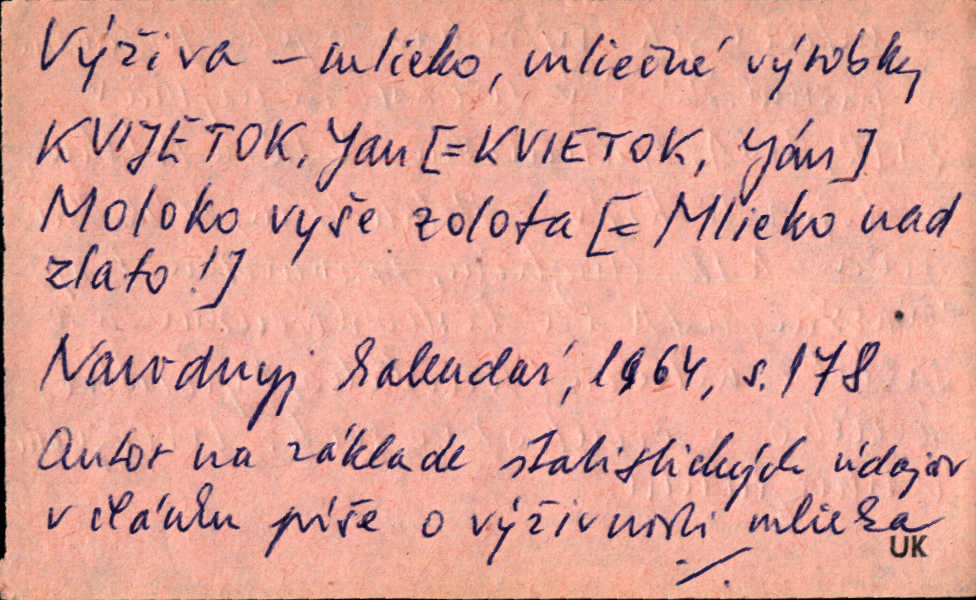 Výživa – mlieko, mliečné výrobky
KVIJETOK, Jan [= KVIETOK, Ján]
Moloko vyše zolota [= Mlieko nad
zlato!]
Narodnyj kalendar, 1964, s. 178
Autor na základe statistických údajov
v článku píše o výživnosti mlieka
UK